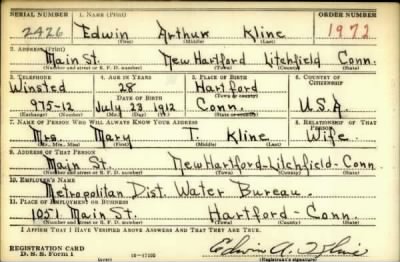 SERIAL NUMBER 1. NAME (Print) ORDER NUMBER
2426 Edwin Arthur Kline 1972
(First) (Middle) (Last)
2. ADDRESS (Print)
Main St. New Hartford Litchfield Conn.
(Number and street or R. F. D. number) (Town) (County) (State)
3. TELEPHONE 4. AGE IN YEARS 5. PLACE OF BIRTH 6. COUNTRY OF CITIZENSHIP
Winsted 28 Hartford
DATE OF BIRTH (Town or county)
975-12 July 23 1912 Conn. U.S.A.
(Exchange) (Number) (Mo.) (Day) (Yr.) (State or country)
7. NAME OF PERSON WHO WILL ALWAYS KNOW YOUR ADDRESS 8. RELATIONSHIP OF THAT PERSON
Mrs. Mary T. Kline Wife
(Mr., Mrs., Miss) (First) (Middle) (Last)
9. ADDRESS OF THAT PERSON
Main St. New Hartford-Litchfield-Conn.
(Number and street or R. F. D. number) (Town) (County) (State)
10. EMPLOYER'S NAME
Metropolitan Dist. Water Bureau.
11. PLACE OF EMPLOYMENT OR BUSINESS
1051 Main St. Hartford-Conn.
(Number and street or R. F. D. number) (Town) (County) (State)
I AFFIRM THAT I HAVE VERIFIED ABOVE ANSWERS AND THAT THEY ARE TRUE.
REGISTRATION CARD
D. S. S. Form 1 (over) Edwin A. Kline
(Registrant's signature)